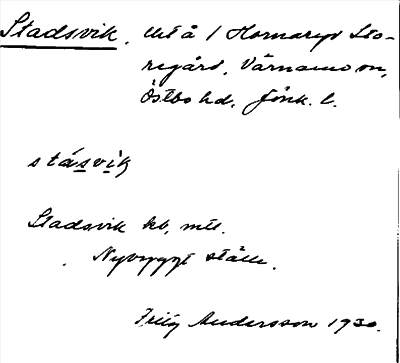 Stadsvik, utå 1 Hornaryd Sto-
regård, Värnamo sn,
Östbo hd, Jönk. l.
stásvik
Stadsvik kb, mtl.
Nybyggt ställe.
Andersson 1930.